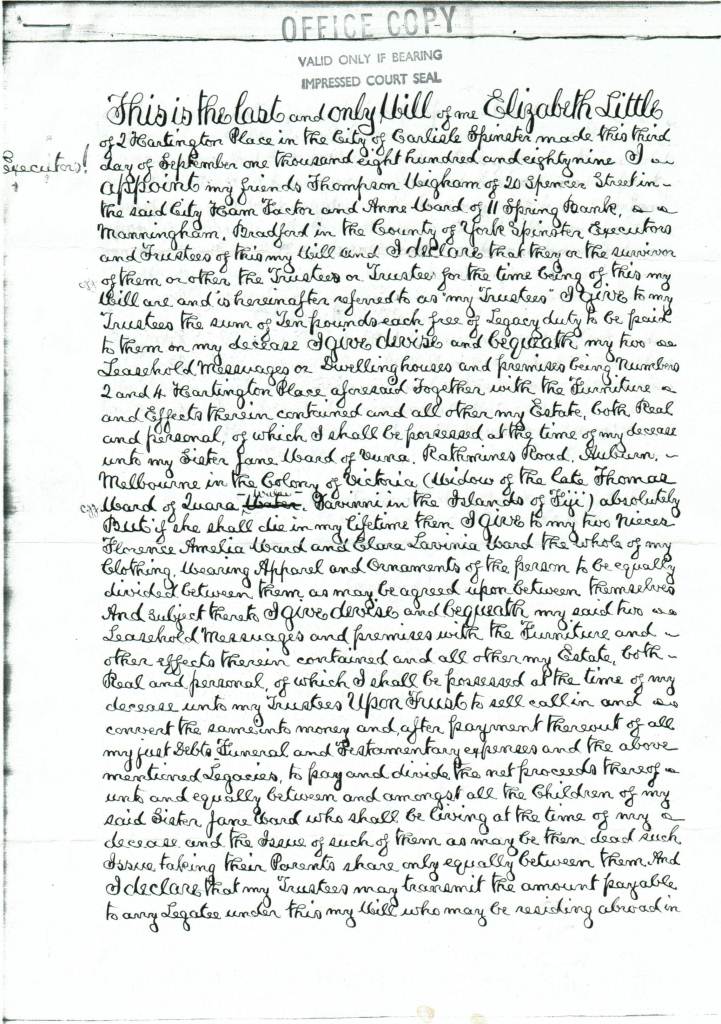 OFFICE COPY
VALID ONLY IF BEARING
IMPRESSED COURT SEAL
This is the last and only Will of me Elizabeth Little
of 2 Hartington Place in the City of Carlisle Spinster made this third
Executors!
day of September one thousand eight hundred and eighty nine I
appoint my friends Thompson Wigham of 20 Spencer Street in
the said City Ham Factor and Anne Ward of 11 Spring Bank,
Manningham, Bradford in the County of York Spinster Executors
and Trustees of this my Will and I declare that they or the survivor
of them or other the Trustees or Trustee for the time being of this my
Will are, and is hereinafter referred to as "my Trustees" I give to my
Trustees the sum of Ten pounds each free of Legacy duty to be paid
to them on my decease I give devise and bequeath my two
Leasehold Messuages or Dwellinghouses and premises being Numbers
2 and 4 Hartington Place aforesaid Together with the Furniture
and Effects therein contained and all other my Estate, both Real
and personal, of which I shall be possessed at the time of my decease
unto my Sister Jane Ward of Vuna, Rathmines Road, Auburn,
Melbourne in the Colony of Victoria (Widow of the late Thomas
Ward of Tavinni in the Islands of Fiji) absolutely
But if she shall die in my lifetime then I give to my two nieces
Florence Amelia Ward and Clara Lavinia Ward the whole of my
Clothing, Wearing Apparel and Ornaments of the person to be equally
divided between them as may be agreed upon between themselves
And subject thereto I give devise and bequeath my said two
Leasehold Messuages and premises with the Furniture and
other effects therein contained and all other my Estate, both
Real and personal, of which I shall be possessed at the time of my
decease unto my Trustees Upon Trust to sell call in and
convert the same into money and after payment thereout of all
my just Debts Funeral and Testamentary expenses and the above
mentioned Legacies, to pay and divide the net proceeds thereof
unto and equally between and amongst all the Children of my
said Sister Jane Ward who shall be living at the time of my
decease and the Issue of such of them as may be then dead such
Issue taking their Parents share only equally between them And
I declare that my Trustees may transmit the amount payable
to any Legatee under this my Will who may be residing abroad in